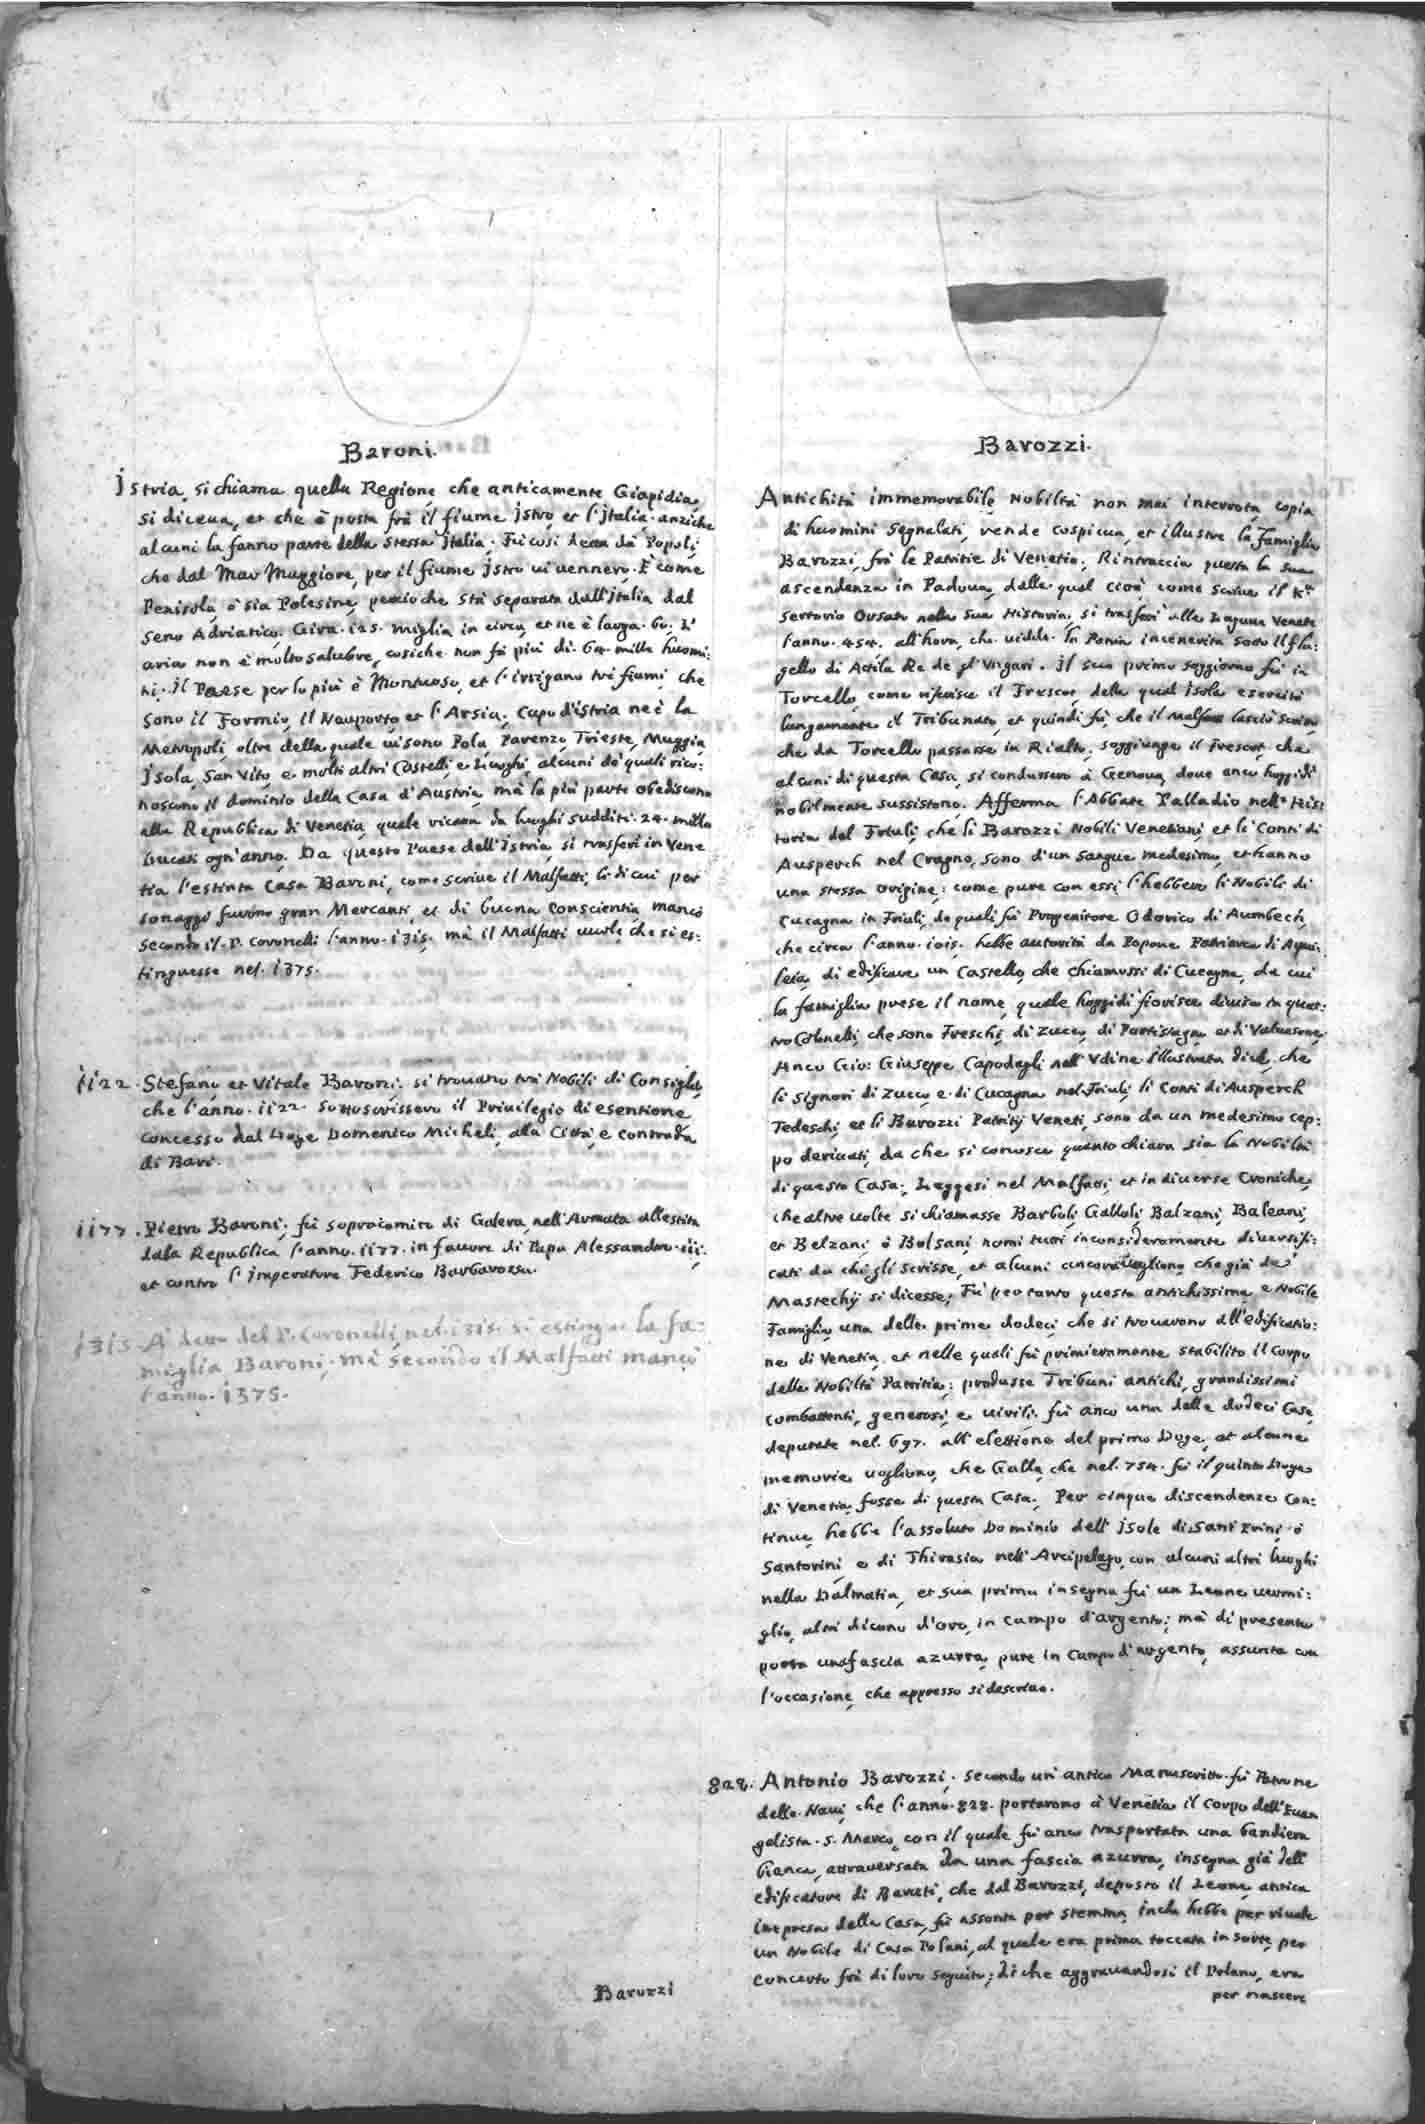 Baroni.
Istria, si chiama quella Regione, che anticamente Giapidia,
si diceua, et che è posta frà il fiume Istro, et l'Italia. anziche
alcuni la fanno parte della stessa Italia. Fù così detta dà Popoli,
che dal Mar Maggiore, per il fiume Istro ui uennero. È come
Penisola, ò sia Polesine, percioche stà separata dall'Italia dal
seno Adriatico. Gira. 125. miglia in circa, et ne è larga. 60. L'
aria non è molto salubre, cosiche non fà più di. 64. mille huomi:
ni. Il Paese per lo più è Montuoso, et l'irrigano trè fiumi, che
sono il Formio, il Nauporto, et l'Arsia. Capo d'istria ne è la
Metropoli, oltre della quale ui sono Pola, Parenzo, Trieste, Muggia,
Isola, San Vito, e molti altri Castelli, e Luoghi, alcuni de quali rico:
noscono il dominio della Casa d'Austria, mà la più parte obediscono
alla Republica di Venetia, quale ricaua da luoghi sudditi. 24. mille
Ducati ogn'anno. Da questo Paese dell'Istria, si trasferì in Vene
tia l'estinta Casa Baroni, come scriue il Malfatti, li di cui per
sonaggi furono gran Mercanti, et di buona conscientia, mancò
secondo il. P. Coronelli l'anno. 1315. mà il Malfatti uuole, che si es:
tinguesse nel. 1375.
1122. Stefano, et Vitale Baroni. si trouano trà Nobili di Consiglio,
che l'anno. 1122. sottoscrissero il Priuilegio di esentione
concesso dal Doge Domenico Micheli, alla Città, e contrada
di Bari.
1177. Pietro Baroni, fù sopracomito di Galera, nell'Armata allestita
dala Republica l'anno. 1177. in fauore di Papa Alessandro. iii.
et contro l'Imperatore Federico Barbarossa.
1315. A detto del P. Coronelli, nel. 1315. si estingue la fa:
miglia Baroni, mà secondo il Malfatti mancò
l'anno. 1375.
Barozzi
Barozzi.
Antichità immemorabile, Nobiltà non mai interrotta, copia
di huomini segnalati, rende cospicua, et illustre la famiglia
Barozzi, frà le Patritie di Venetia. Rintraccia questa la sua
ascendenza in Padoua, dalla qual città come scriue il K.r
Sertorio Orsato nella sua Historia, si trasferì alle Lagune Venete
l'anno. 454. all'hora, che uidde la Patria incenerita sotto il fla:
gello di Attila Re de gl'Ungari. Il suo primo soggiorno fù in
Torcello, come riferisce il Frescot, della qual Isola esercitò
lungamente il Tribunato, et quindi fù che il Malfatti lasciò scritto,
che da Torcello passasse in Rialto, soggiunge il Frescot, che
alcuni di questa Casa, si condussero à Genoua, doue anco hoggidì
nobilmente sussistono. Afferma l'Abbate Palladio nell' His:
toria del Friuli, che li Barozzi Nobili Venetiani, et li Conti di
Ausperch nel Cragno, sono d'un sangue medesimo, et hanno
una stessa origine; come pure con essi l'hebbero li Nobili di
Cucagna in Friuli, de quali fù Progenitore Odorico di Aumbech,
che circa l'anno. 1015. hebbe autorità da Popone Patriarca di Aqui:
leia, di edificare un Castello, che chiamossi di Cucagna, da cui
la famiglia prese il nome, quale hoggidì fiorisce diuisa in quat:
tro Colonelli, che sono Freschi, di Zucco, di Partistagno et di Valuasone,
Anco Gio: Giuseppe Capodagli nell'Vdine illustrata dice, che
li Signori di Zucco, e di Cucagna nel Friuli, li Conti di Ausperch
Tedeschi, et li Barozzi Patritij Veneti, sono da un medesimo cep:
po deriuati, da che si conosce quanto chiara sia la Nobiltà
di questa Casa. Leggesi nel Malfatti, et in diuerse Croniche,
che altre uolte si chiamasse Barboli, Gabboli, Balzani, Baleani,
et Belzani ò Bolsani, nomi tutti inconsideramente diuersifi:
cati da chi gli scrisse, et alcuni ancora uogliono, che già de'
Mastechij si dicesse; Fù pertanto questa antichissima, e Nobile
Famiglia una delle prime dodeci, che si trouarono all'edificatio:
ne di Venetia, et nelle quali fù primieramente stabilito il corpo
della Nobiltà Patritia; produsse Tribuni antichi, grandissimi
combattenti, generosi, e uirili, fù anco una delle dodeci Case,
deputate nel. 697. all'elettione del primo Doge, et alcune
memorie uogliono, che Galla, che nel. 754. fù il quinto Doge
di Venetia, fosse di questa Casa. Per cinque discendenze con:
tinue, hebbe l'assoluto Dominio dell' Isole di Sant'Erini, ò
Santorini, e di Thirasia nell'Arcipelago, con alcuni altri luoghi
nella Dalmatia, et sua prima insegna fù un Leone uermi:
glio, altri dicono d'oro, in Campo d'argento; mà di presente
porta una fascia azurra, pure in Campo d'argento, assunta con
l'occasione, che appresso si descriue.
828. Antonio Barozzi. secondo un'antico Manuscritto. fù Patrone
delle Naui, che l'anno. 828. portarono à Venetia il Corpo dell'Euan
gelista. S. Marco, con il quale fù anco trasportata una bandiera
bianca, attrauersata da una fascia azurra, insegna già dell'
edificatore di Baruti, che dal Barozzi, deposto il Leone, antica
impresa della Casa, fù assonta per stemma, in che hebbe per riuale
un Nobile di Casa Polani, al quale era prima toccata in sorte, per
concerto frà di loro seguito; di che aggrauandosi il Polano, era
per nascere